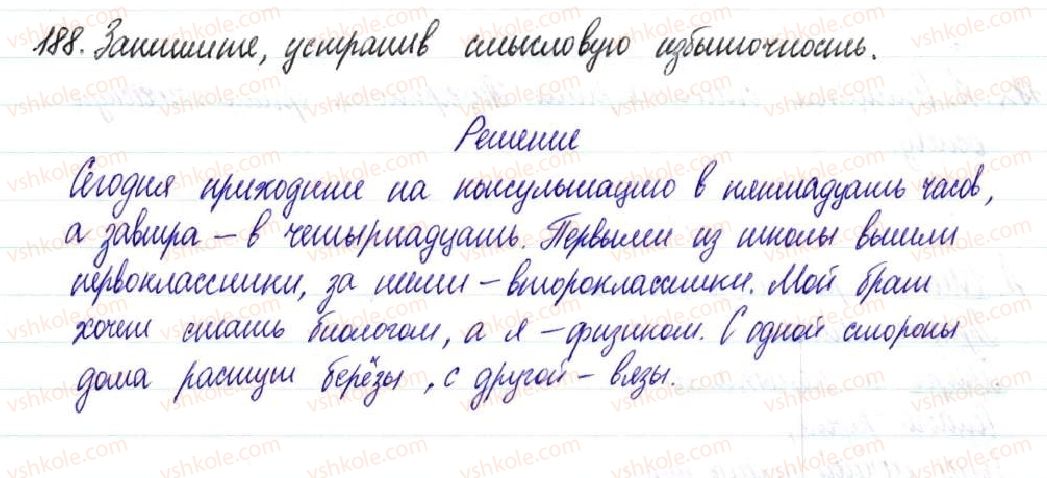 188. Запишите, устранив смысловую избыточность.
Решение
Сегодня приходите на консультацию в пятнадцать часов,
а завтра – в четырнадцать. Первыми из школы вышли
первоклассники, за ними – второклассники. Мой брат
хочет стать биологом, а я – физиком. С одной стороны
дома растут берёзы, с другой – вязы.